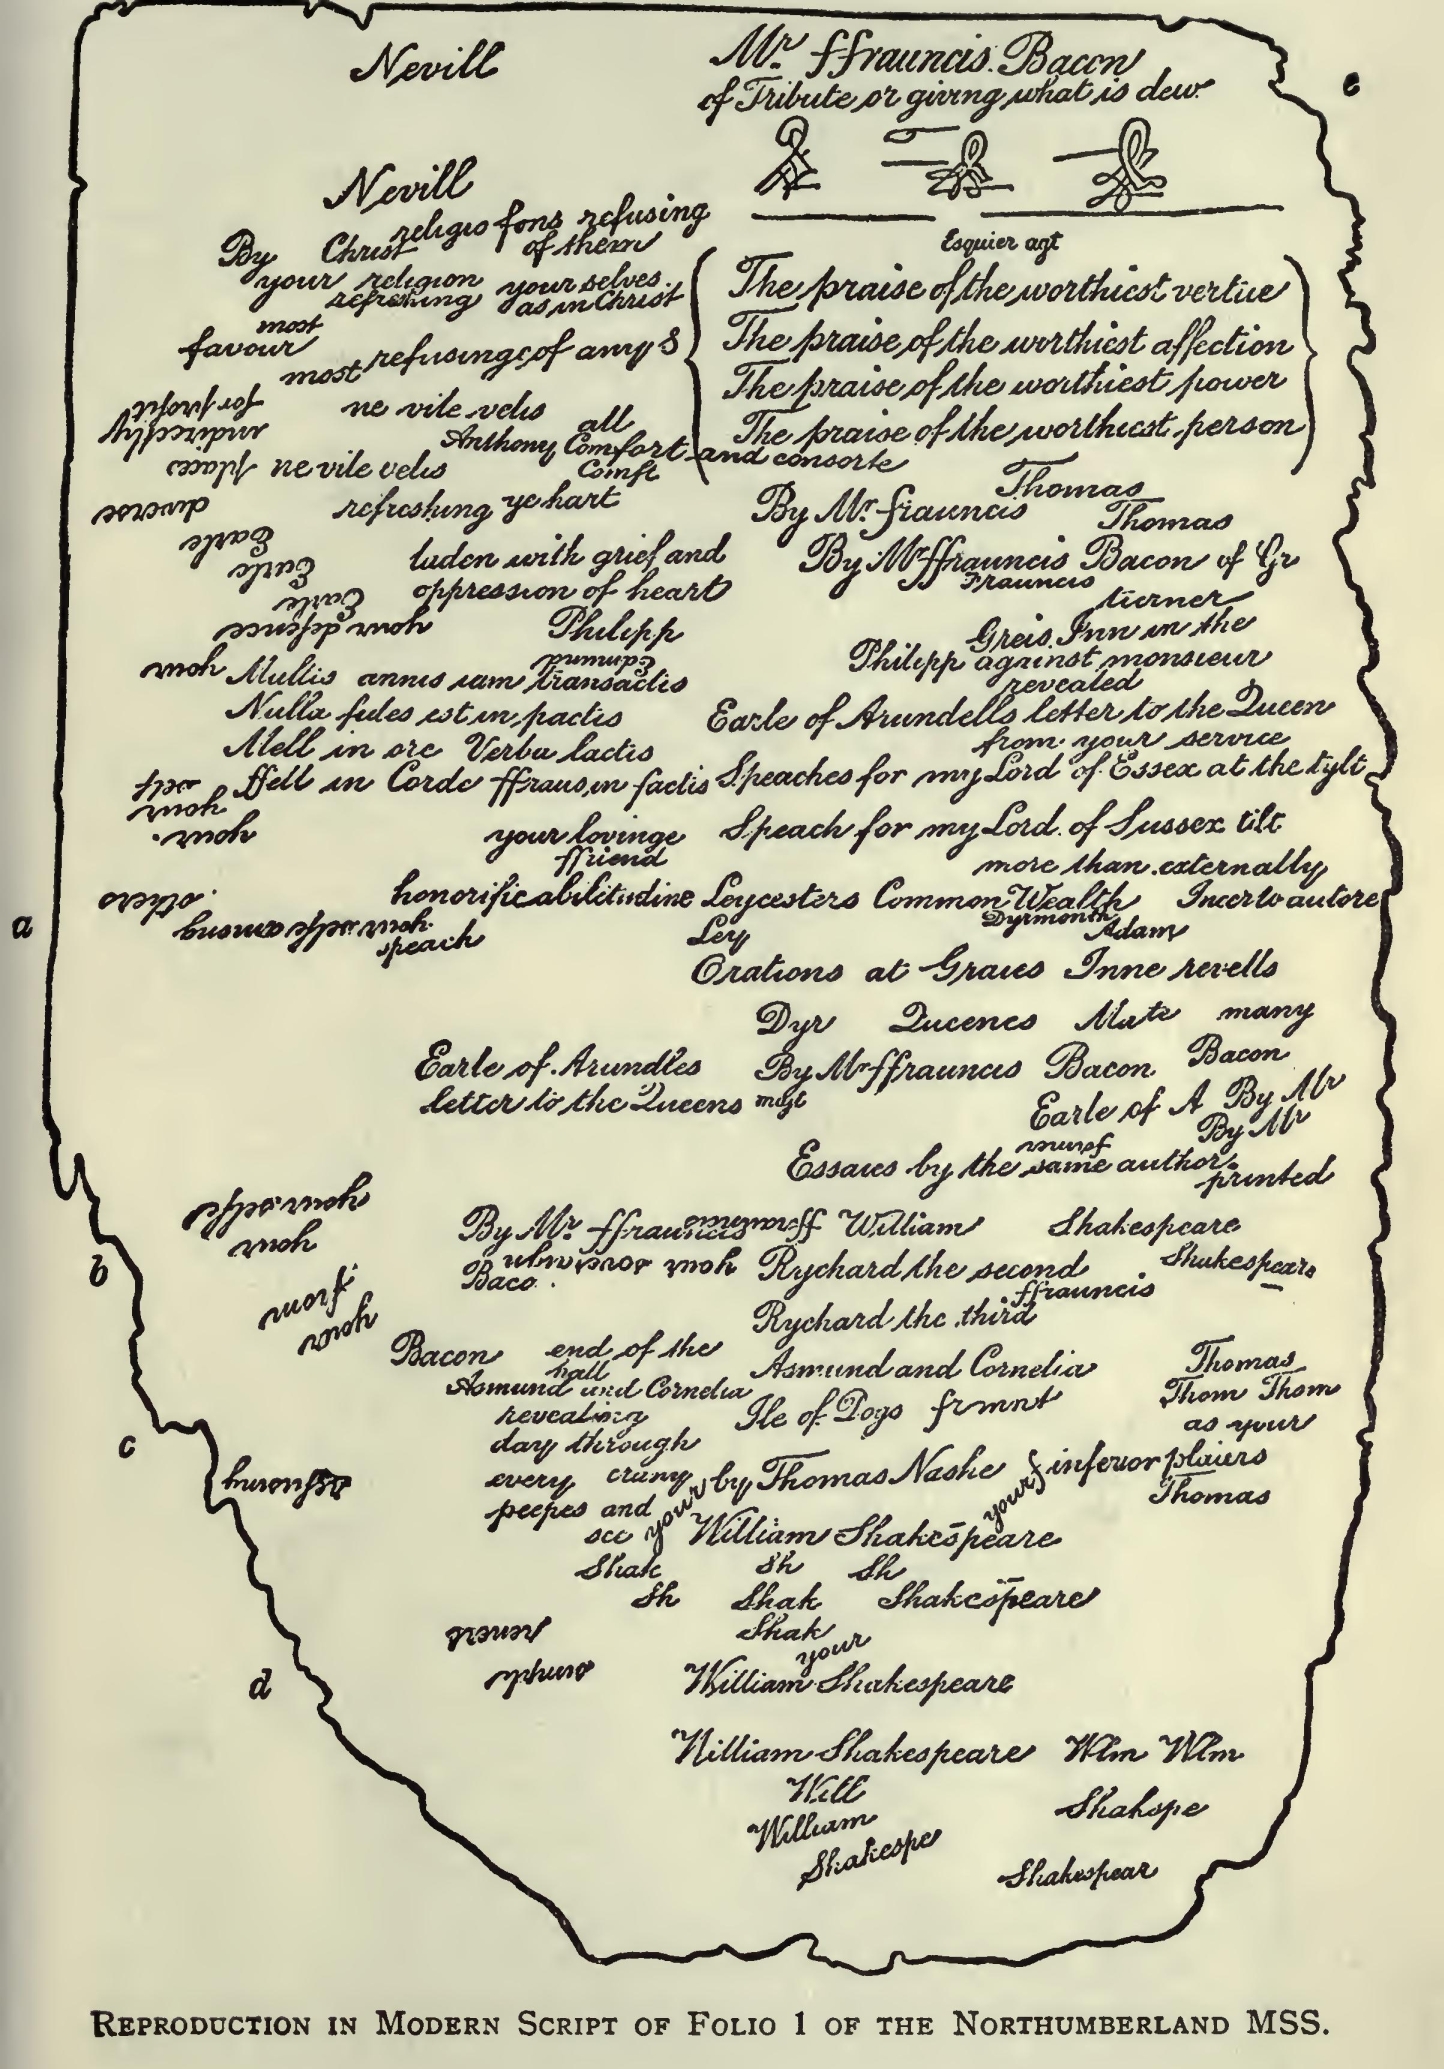 Nevill
Mr. ffrauncis. Bacon
of Tribute or giving what is dew
e
Nevill
religio fons refusing
By Christ of them
Esquier agt
your religion your selves.
refreshing as in Christ
The praise of the worthiest vertue
most
favour
most refusinge of any
The praise of the worthiest affection
The praise of the worthiest power
for profit
ne vile velis
all
The praise of the worthiest person
indirectly
Anthony Comfort and consorte
places ne vile velis Comft
Thomas
diverse
refreshing ye hart
By Mr. ffrauncis
Thomas
Earle
Earle
laden with grief and
By Mr ffrauncis Bacon of Gr
Frauncis
Earle
oppression of heart
turner
your defence
Philipp
Greis Inn in the
Edmund
your Multis annis iam transactis
Philipp against monsieur
revealed
Nulla fides est in pactis
Earle of Arundells letter to the Queen
Mell in ore Verba lactis
from your service
ffell in Corde ffraus in factis
Speaches for my Lord of Essex at the tylt
self
your
your.
your lovinge
ffriend
Speach for my Lord of Sussex tilt
more than externally
others
honorificabilitudine
Leycesters Common Wealth Incerto autore
a
your selfe among
speach
Dyrmonth
Adam
Ley
Orations at Graies Inne revells
Dyr Queenes Mate many
Earle of Arundles
By Mr ffrauncis Bacon Bacon
letter to the Queens
Earle of A By Mr
By Mr
Essaies by the same author
printed
your selfe
your
By Mr. ffrauncis
William Shakespeare
b
your
Baco.
Rychard the second
Shakespeare
ffrauncis
from
your
Rychard the third
Bacon end of the
hall
Asmund and Cornelia
Thomas
Asmund and Cornelia
Thom Thom
revealing
Ile of Dogs frmnt
as your
c
day through
every crany
your
by Thomas Nashe
your
inferior plaiers
peepes and
see
Thomas
William Shakespeare
Shak Sh Sh
Sh Shak Shakespeare
Shak
your
d
William Shakespeare
William Shakespeare Wlm Wlm
Will
Shakspe
William
Shakespe
Shakespear
REPRODUCTION IN MODERN SCRIPT OF FOLIO 1 OF THE NORTHUMBERLAND MSS.